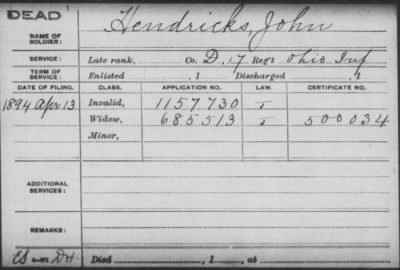 DEAD
NAME OF SOLDIER: Hendricks, John
SERVICE: Late rank, Co. D, 17 Reg't Ohio Inf
TERM OF SERVICE: Enlisted , 1 Discharged , 1
DATE OF FILING. CLASS. APPLICATION NO. LAW. CERTIFICATE NO.
1894 Apr 13 Invalid, 1157730
Widow, 685513 500034
Minor,
ADDITIONAL SERVICES:
REMARKS:
Died , 1 , at